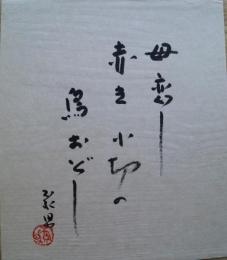 母恋し
赤き小切の
鳥おどし